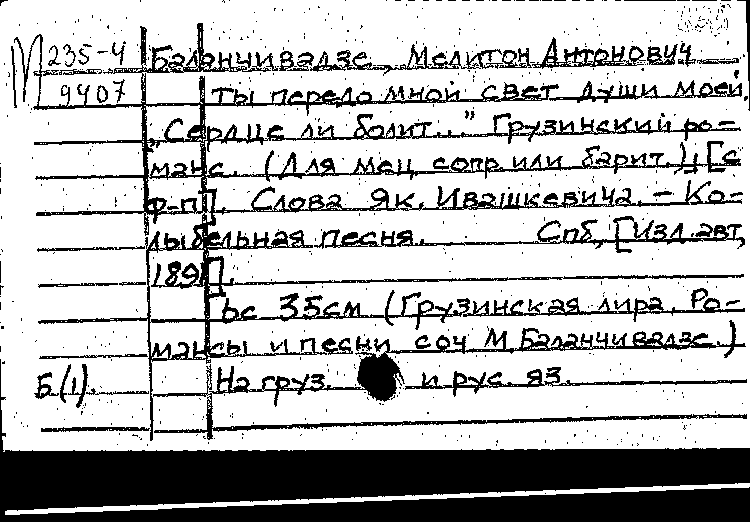 М 235-4 Баланчивадзе, Мелитон Антонович
9407 Ты передо мной свет души моей.
„Сердце ли болит..." Грузинский ро-
манс. (Для мец. сопр. или барит.), [с
ф-п]. Слова Як. Ивашкевича. – Ко-
лыбельная песня. Спб, [Изд. авт,
189 ].
ьс 35см (Грузинская лира. Ро-
мансы и песни соч М. Баланчивадзе.)
Б(1). На груз. и рус. яз.